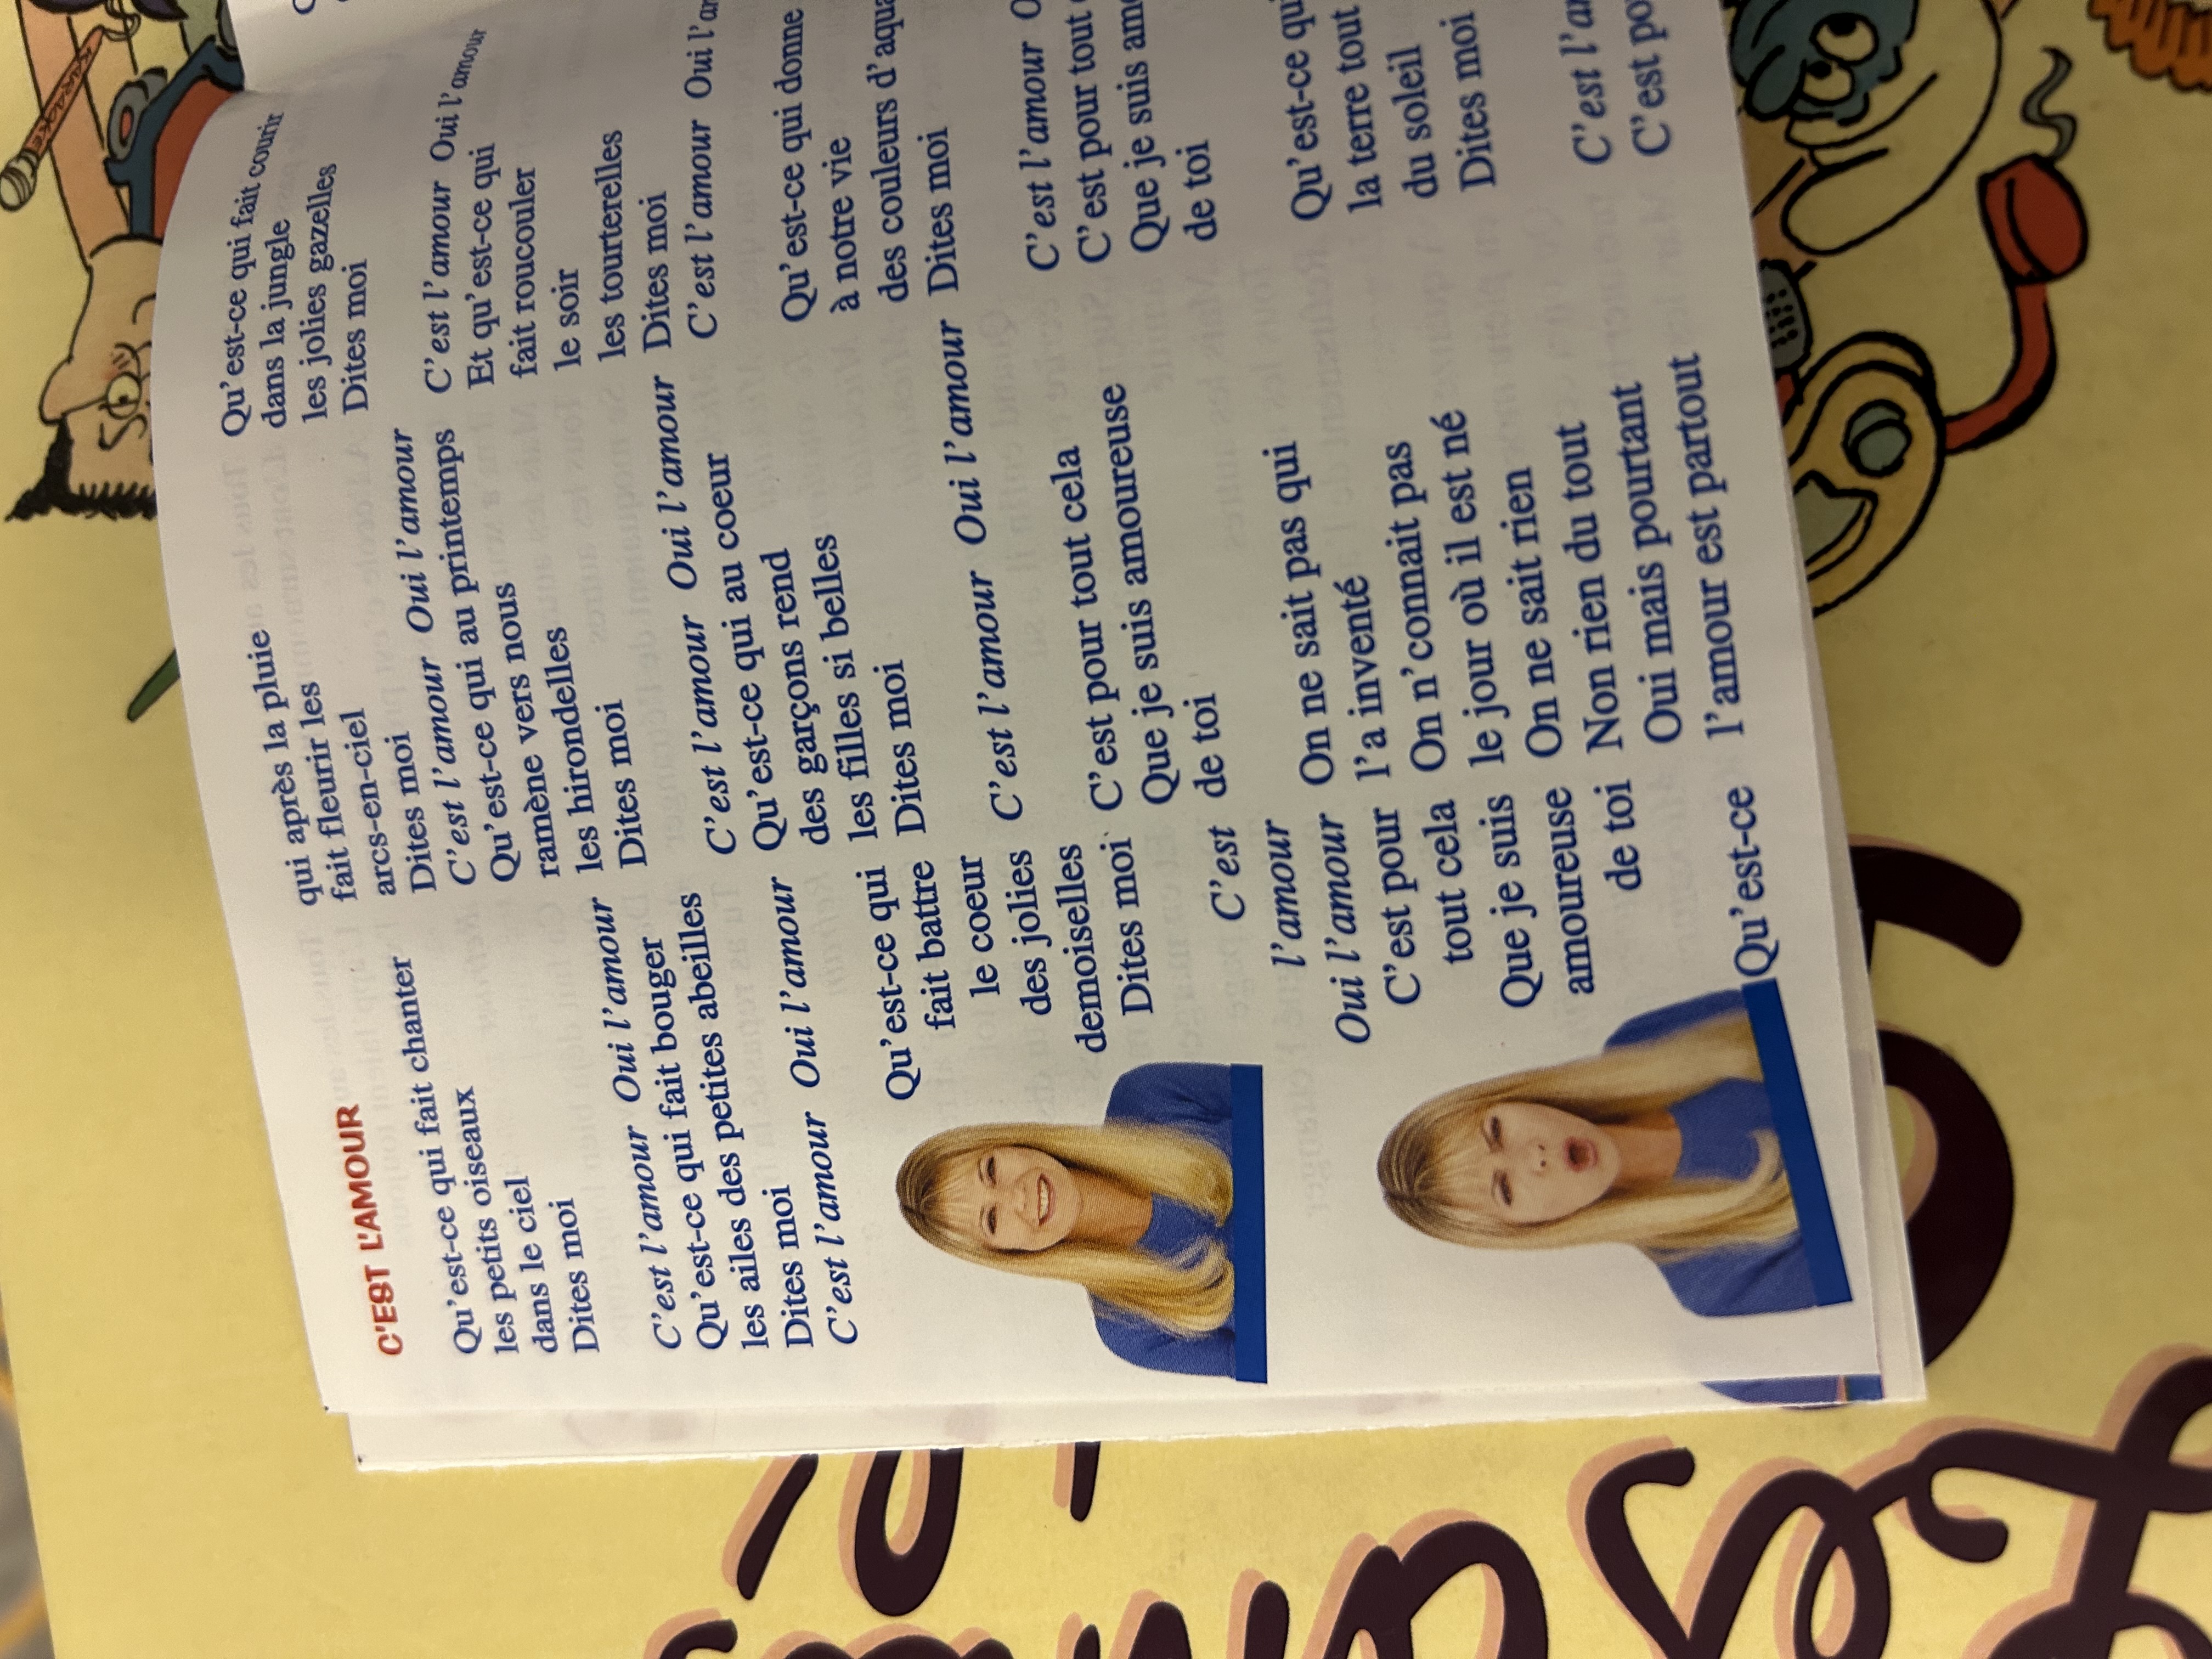 C'EST L'AMOUR
Qu'est-ce qui fait chanter
les petits oiseaux
dans le ciel
Dites moi
C'est l'amour Oui l'amour
Qu'est-ce qui fait bouger
les ailes des petites abeilles
Dites moi
C'est l'amour Oui l'amour
Qu'est-ce qui
fait battre
le coeur
des jolies
demoiselles
Dites moi
C'est
l'amour
Oui l'amour
C'est pour
tout cela
Que je suis
amoureuse
de toi
Qu'est-ce
qui après la pluie
fait fleurir les
arcs-en-ciel
Dites moi
C'est l'amour Oui l'amour
Qu'est-ce qui au printemps
ramène vers nous
les hirondelles
Dites moi
C'est l'amour Oui l'amour
Qu'est-ce qui au coeur
des garçons rend
les filles si belles
Dites moi
C'est l'amour Oui l'amour
C'est pour tout cela
Que je suis amoureuse
de toi
On ne sait pas qui
l'a inventé
On n'connait pas
le jour où il est né
On ne sait rien
Non rien du tout
Oui mais pourtant
l'amour est partout
Qu'est-ce qui fait courir
dans la jungle
les jolies gazelles
Dites moi
C'est l'amour Oui l'amour
Et qu'est-ce qui
fait roucouler
le soir
les tourterelles
Dites moi
C'est l'amour Oui
Qu'est-ce qui donne
à notre vie
des couleurs
Dites moi
C'est l'amour
C'est pour tout
Que je suis
de toi
Qu'est-ce qui
la terre tout
du soleil
Dites moi
C'est
C'est
KARAOKÉ